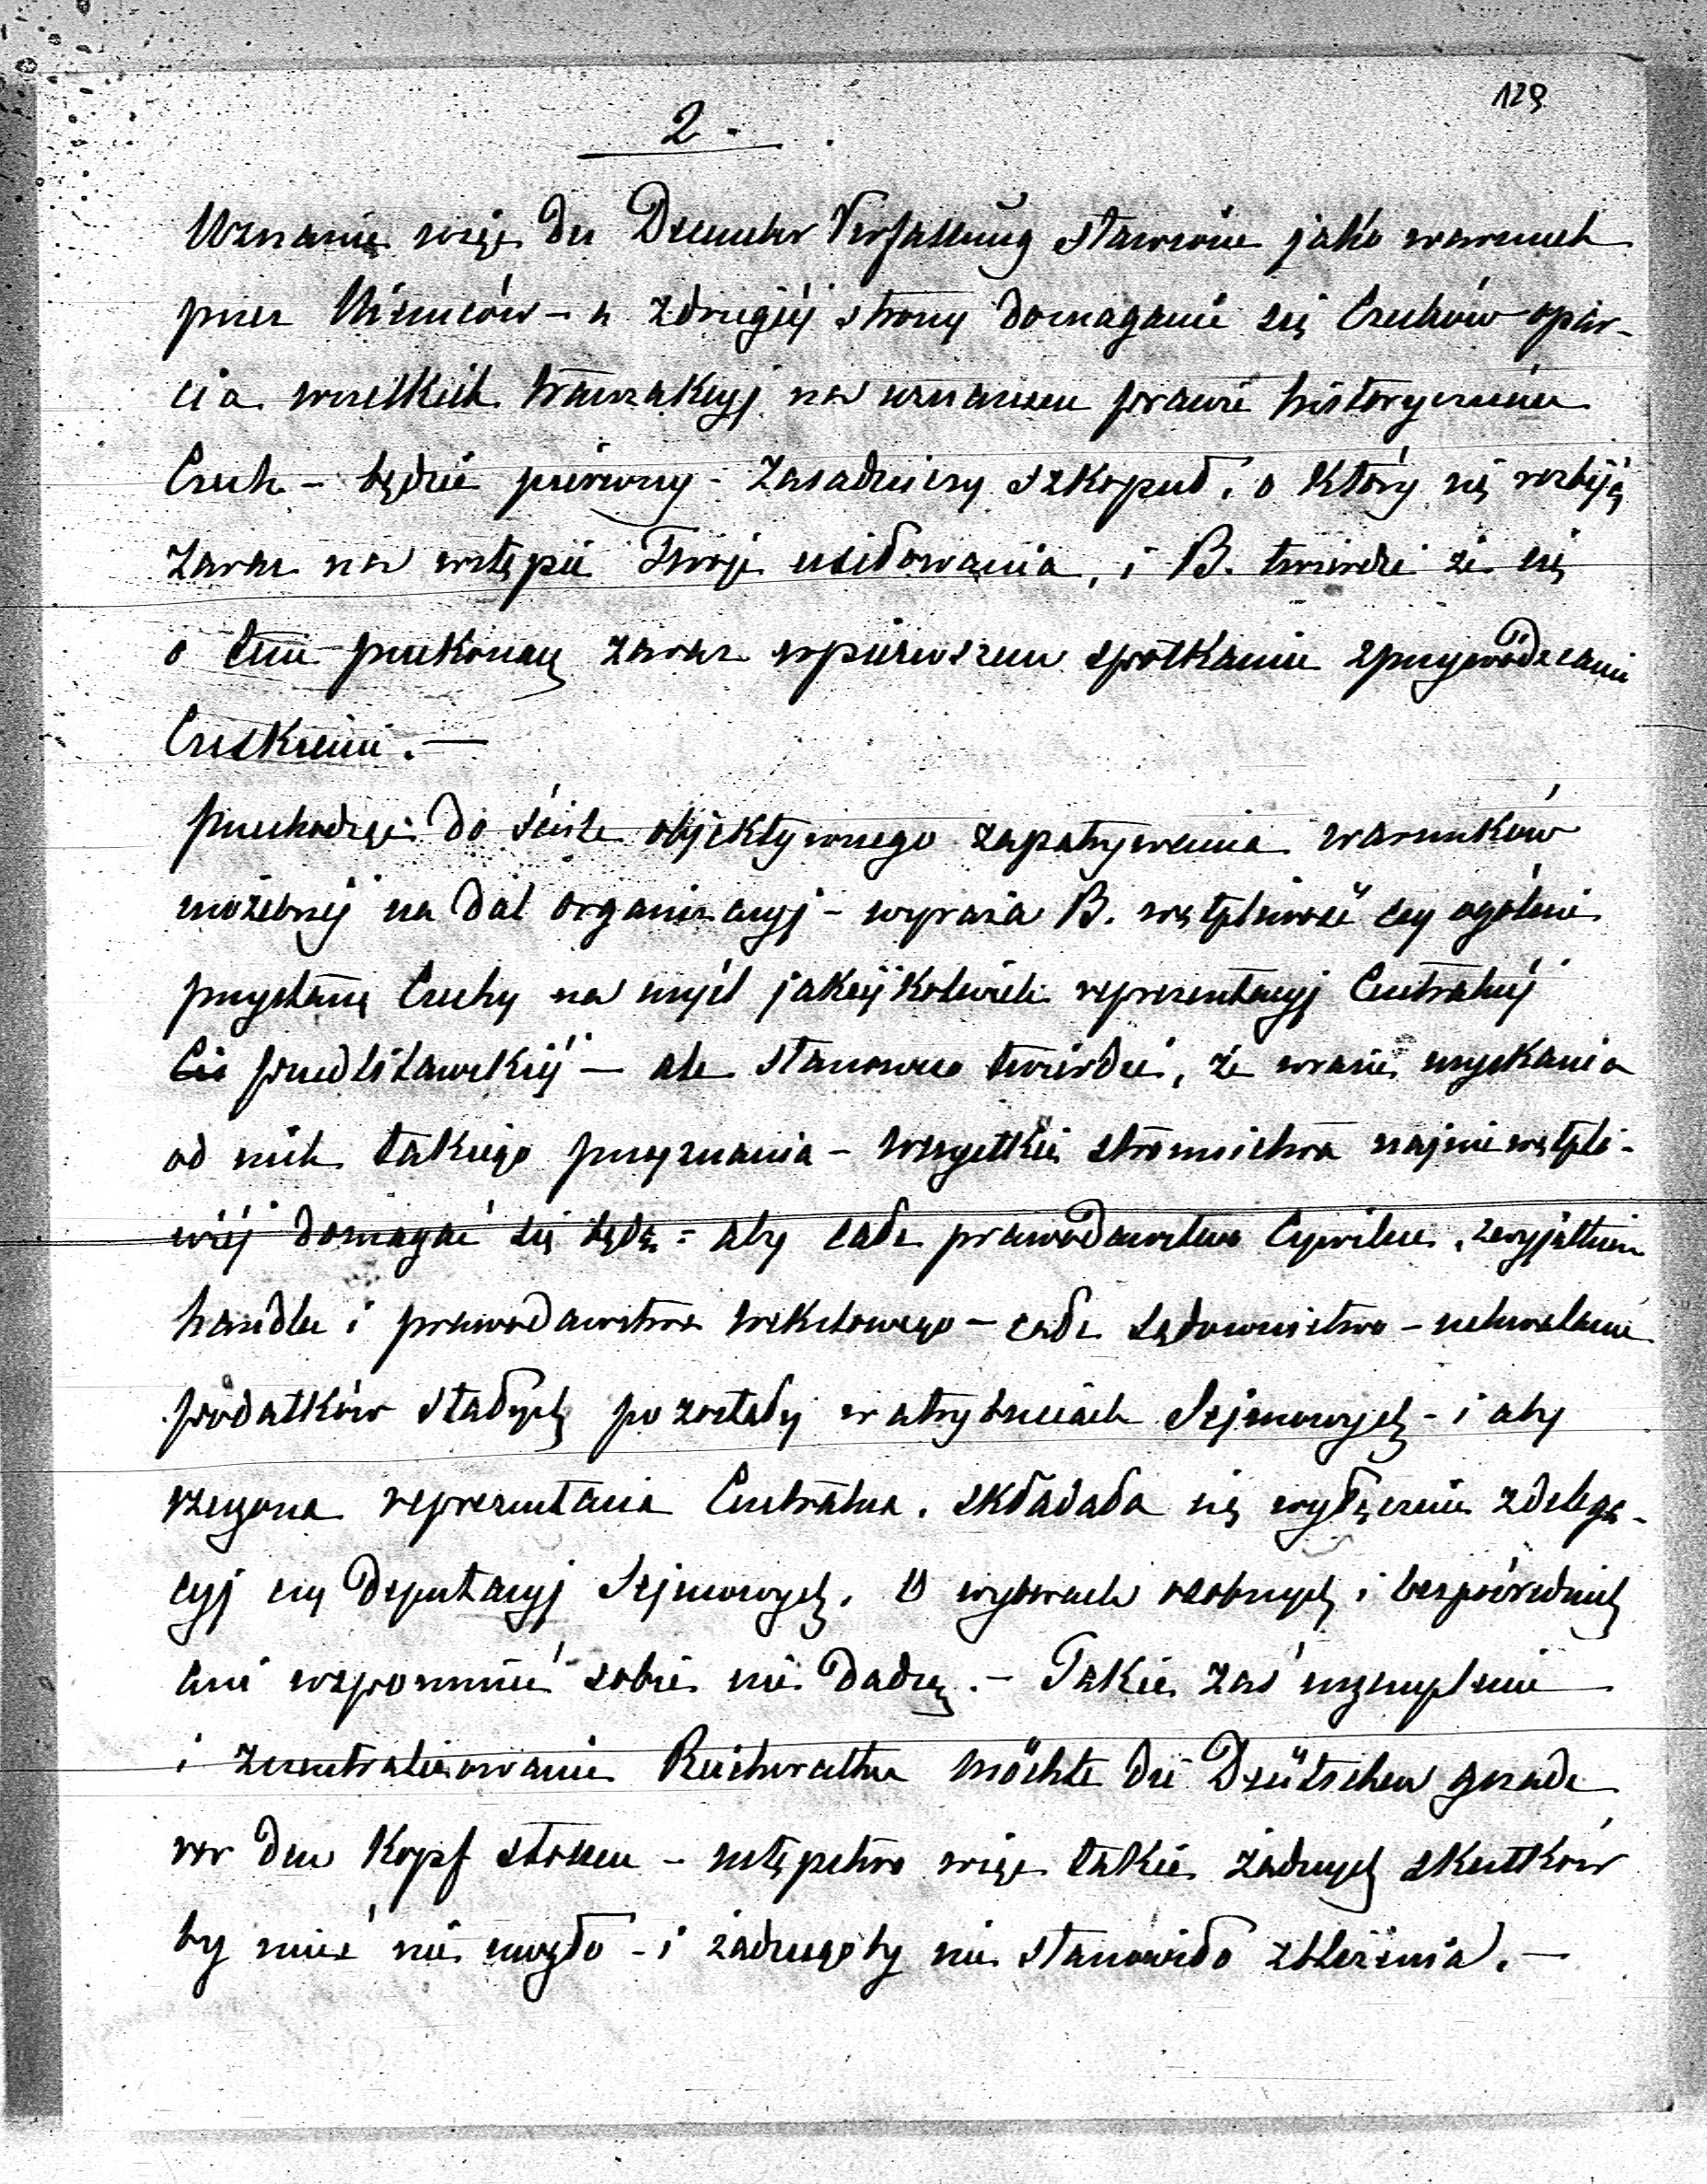 129
2.
Uznanie więc der Dezember Verfassung stawione jako warunek
przez Niemców - a zdrugiéj strony domaganie się Czechów opar-
cia wszelkich tranzakcyj na uznaniu prawie historycznem
Czech - będzie pierwszy - zasadniczy szkopuł, o który się rozbiją
zaraz na wstępie Twoje usiłowania, i B. twierdzi że się
o tem przekonasz zaraz wpierwszem spotkaniu zprzywódzcami
Czeskiemi. —
Przechodząc do ściśle objektywnego zapatrywania warunków
możebnéj na dal organizacyj - wyraża B. wątpliwość czy ogólnie
przystaną Czechy na myśl jakiéjkolwiek reprezentacyj Centralnéj
Cis przedlitawskiéj — ale stanowczo twierdzi, że wrazie uzyskania
od nich takiego przyznania - wszystkie stronnictwa najniewątpli-
wiéj domagać się będą: aby całe prawodawstwo Cywilne, zwyjątkiem
handlu i prawodawstwa wekslowego - całe sądownictwo - uchwalanie
podatków stałych pozostały w atrybuciach Sejmowych - i aby
rzeczona reprezentacia Centralna, składała się wyłącznie zdelega-
cyj czy Deputacyj Sejmowych. O wyborach osobnych i bezpośrednich
ani wspomnieć sobie nie dadzą. - Takie zaś
i zcentralizowanie Reichsrathu möchte die Deütschen gerade
vor den Kopf stossen - ustępstwo więc takie żadnych skutków
by mieć nie mogło - i żadnegoby nie stanowiło zbliżenia. —